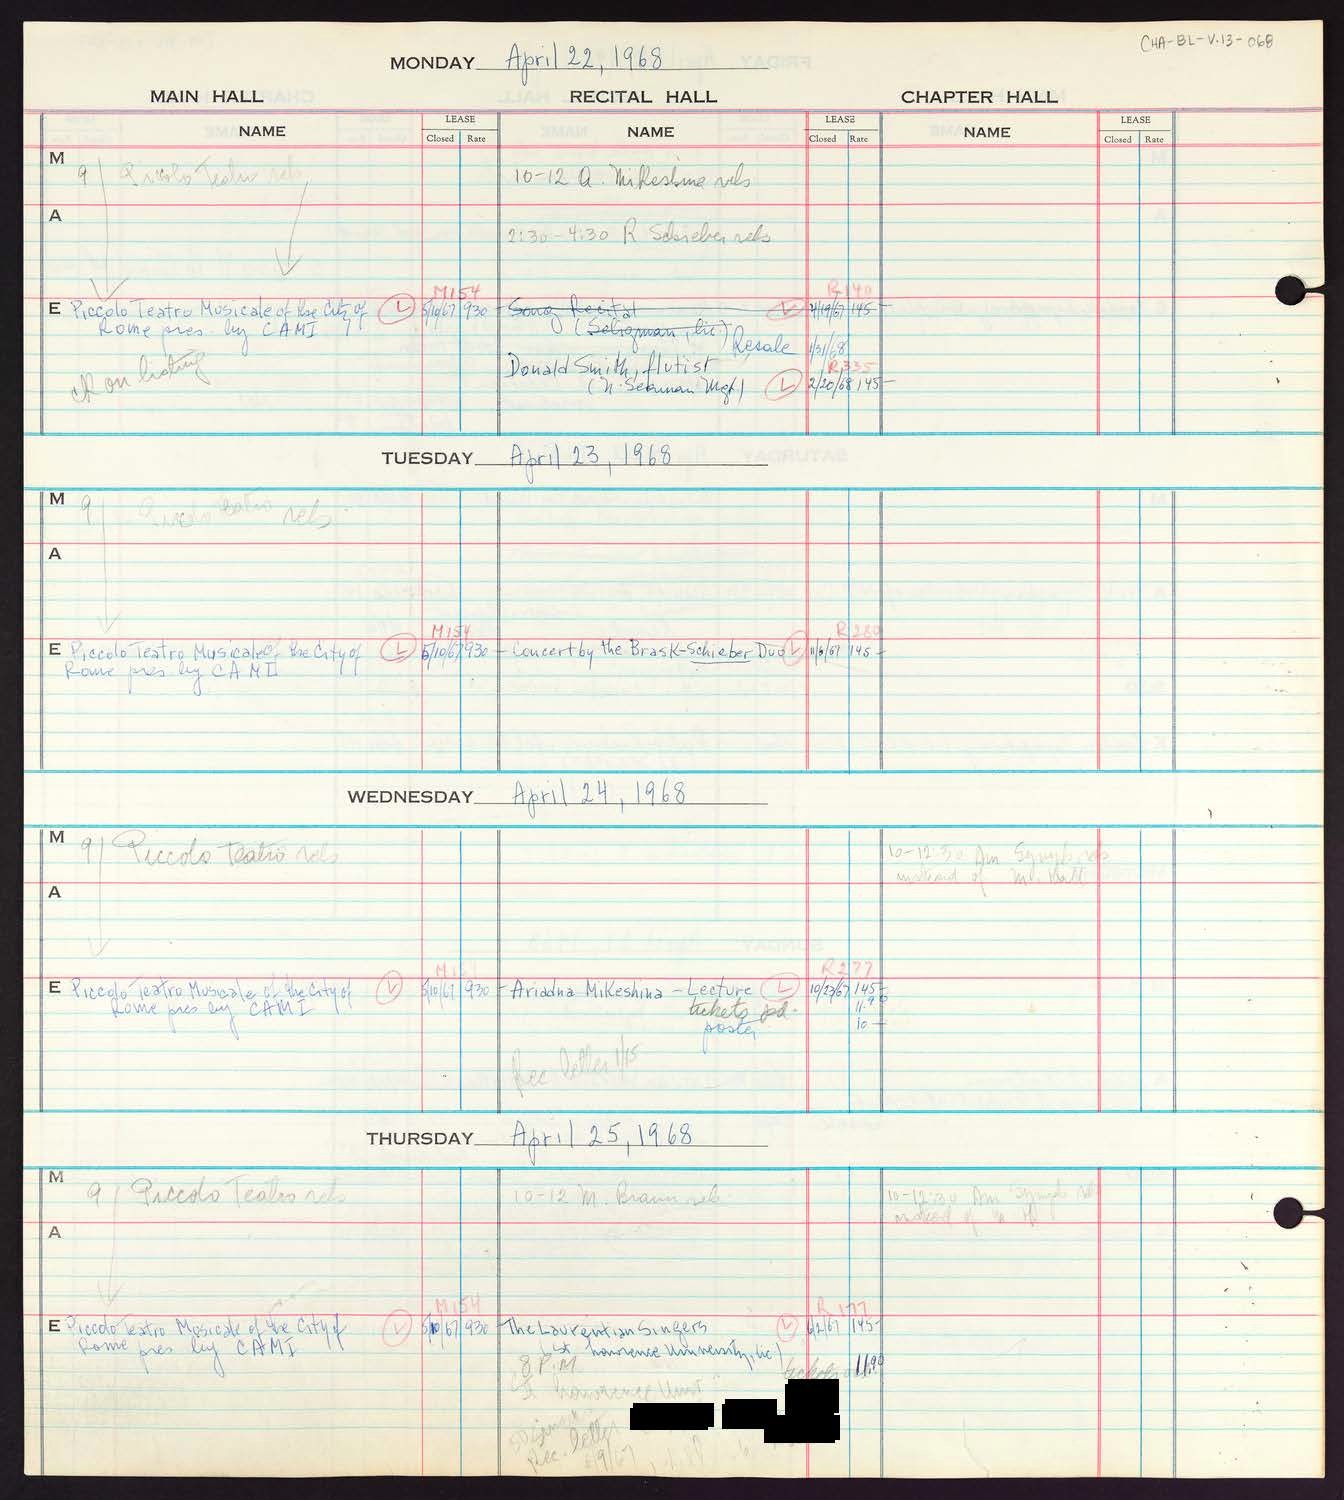 CHA-BL-V.13-068
MONDAY April 22, 1968
MAIN HALL RECITAL HALL CHAPTER HALL
NAME LEASE Closed Rate NAME LEASE Closed Rate NAME LEASE Closed Rate
M 9 Piccolo Teatro rehs 10-12 A. Mikeshina rehs
A 2:30-4:30 R Schieber rehs
M154 R140
E Piccolo Teatro Musicale of the City of L 5/10/67 930 - Song Recital L 4/19/67 145-
Rome pres. by CAMI (Seligman, lic.) Resale 1/31/68
ck on listing Donald Smith, flutist R335
(N. Seaman Mgt) L 2/20/68 145-
TUESDAY April 23, 1968
M 9 Piccolo Teatro rehs
A
M154 R280
E Piccolo Teatro Musicale of the City of L 5/10/67 930 - Concert by the Brask-Schieber Duo L 11/8/67 145-
Rome pres by CAMI
WEDNESDAY April 24, 1968
M 9 Piccolo Teatro rehs 10-12:30 Am Symph. rehs
instead of
A
M154 R277
E Piccolo Teatro Musicale of the City of L 5/10/67 930 - Ariadna Mikeshina - Lecture L 10/23/67 145-
Rome pres by CAMI tickets pd. 11.90
poster 10-
Rec letter 1/15
THURSDAY April 25, 1968
M 9 Piccolo Teatro rehs 10-12 M. Braun rehs 10-12:30 Am Symph rehs
instead of
A
M154 R177
E Piccolo Teatro Musicale of the City of L 5/10/67 930 - The Laurentian Singers L 6/2/67 145-
Rome pres by CAMI (St. Lawrence University, lic)
8 P.M. tickets 11.90
St Lawrence Univ
Rec. letter